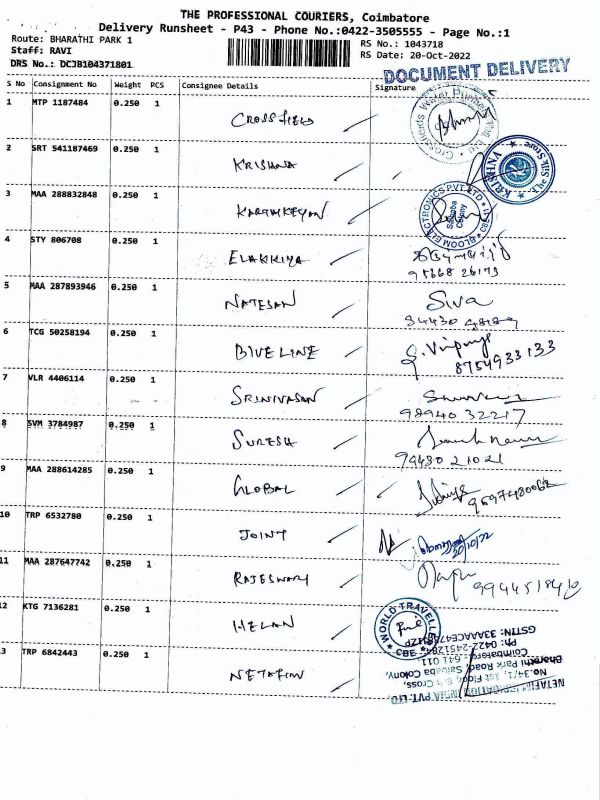 THE PROFESSIONAL COURIERS, Coimbatore
Delivery Runsheet - P43 - Phone No.:0422-3505555 - Page No.:1
Route: BHARATHI PARK 1
RS No.: 1043718
Staff: RAVI
RS Date: 20-Oct-2022
DRS No.: DCJB104371801
DOCUMENT DELIVERY
S No Consignment No Weight PCS Consignee Details Signature
1 MTP 1187484 0.250 1
CROSSFIELD
2 SRT 541187469 0.250 1
KRISHNA
3 MAA 288832848 0.250 1
KARTHIKEYAN
BLOOM ELECTRONICS PVT. LTD
Saibaba Colony
4 STY 806708 0.250 1
ELAKKIYA
95668 26173
5 MAA 287893946 0.250 1
NATESAN Siva
6 TCG 50258194 0.250 1
BLUE LINE
8754933133
7 VLR 4406114 0.250 1
SRINIVASAN
98940 32217
8 SVM 3784987 0.250 1
SURESH
94430 21021
9 MAA 288614285 0.250 1
GLOBAL
10 TRP 6532780 0.250 1
JOINT
11 MAA 287647742 0.250 1
RAJESWARY
12 KTG 7136281 0.250 1
HELAN
WORLD TRAVELLE
CBE
13 TRP 6842443 0.250 1
NETAFIM
No.34/1, 1st Floor, Cross,
Bharathi Park Road, Saibaba Colony,
Coimbatore - 641 011.